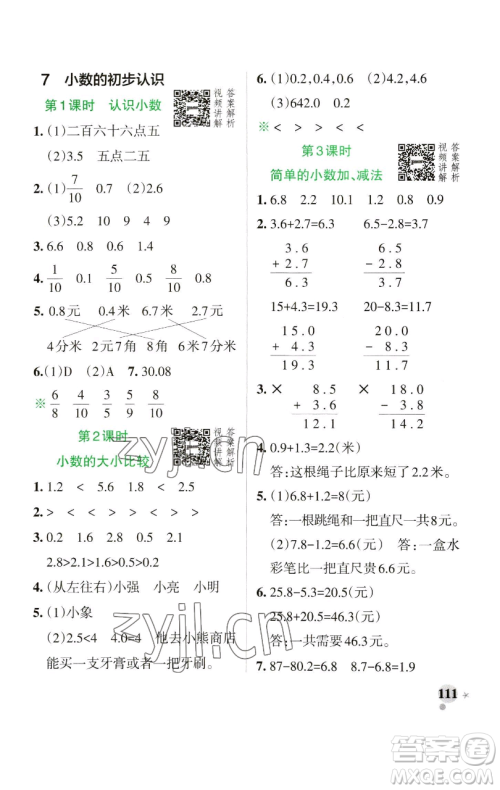 7 小数的初步认识
第1课时 认识小数
视频讲解
答案解析
1. (1)二百六十六点五
(2)3.5 五点二五
2. (1)7/10 0.7 (2)2.6
(3)5.2 10 9 4 9
3. 6.6 0.8 0.4
4. 1/10 0.1 5/10 0.5 8/10 0.8
5. 0.8元 0.4米 6.7米 2.7元
4分米 2元7角 8角 6米7分米
6.(1)D (2)A 7. 30.08
※ 6/8 4/10 8/10 6/10
第2课时
小数的大小比较
视频讲解
答案解析
1. 1.2 < 5.6 1.8 < 2.5
2. > > > > < >
3. 0.2 1.6 2.1 2.8
2.8>2.1>1.6>0.2
4. (从左往右)小强 小亮 小明
5. (1)小象
(2)2.5<4 4.0=4 他去小熊商店
能买一支牙膏或者一把牙刷。
6. (1)0.2,0.4 (2)4.2,4.6
(3)642.0 0.2
※ < > < >
第3课时
简单的小数加、减法
视频讲解
答案解析
1. 6.8 2.2 10.1 1.2 0.8 0.9
2. 3.6+2.7=6.3 6.5−2.8=3.7
3.6 6.5
+ 2.7 − 2.8
6.3 3.7
15+4.3=19.3 20−8.3=11.7
15.0 20.0
+ 4.3 − 8.3
19.3 11.7
3. × 8.5 × 18.0
+ 3.6 − 3.6
12.1 14.4
4. 0.9+1.3=2.2(米)
答:这根绳子比原来短了2.2米。
5. (1)6.8+1.2=8(元)
答:一根跳绳和一把直尺一共8元。
(2)7.8−1.2=6.6(元) 答:一盒水
彩笔比一把直尺贵6.6元。
6. 25.8−5.3=20.5(元)
25.8+20.5=46.3(元)
答:一共需要46.3元。
7. 87−80.2=6.8 8.7−6.8=1.9
111
zyjl.cn
zyjl.cn
答案圈
MXQE.COM